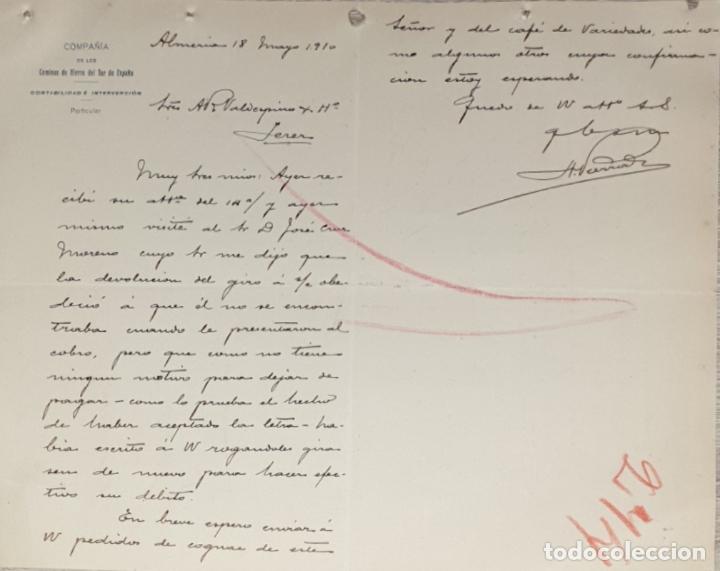 COMPAÑIA
DE LOS
Caminos de Hierro del Sur de España
CONTABILIDAD É INTERVENCIÓN
Particular
Almeria 18 Mayo 1910
Sres A. R. Valdespino y Hº
Jerez
Muy Sres mios: Ayer re-
cibi su attª del 14 a/ y ayer
mismo visité al Sr D José Cruz
Moreno cuyo Sr me dijo que
la devolucion del giro á s/c obe-
deció á que él no se encon-
traba cuando le presentaron al
cobro, pero que como no tiene
ningun motivo para dejar de
pagar - como lo prueba el hecho
de haber aceptado la letra - ha-
bia escrito á VV rogandoles gira-
sen de nuevo para hacer efec-
tivo su débito.
En breve espero enviar á
VV pedidos de cognac de este
Señor y del café de Variedades, asi co-
mo algunos otros cuya confirma-
cion estoy esperando.
Quedo de VV attº s.s.
q b s m
todocoleccion.net